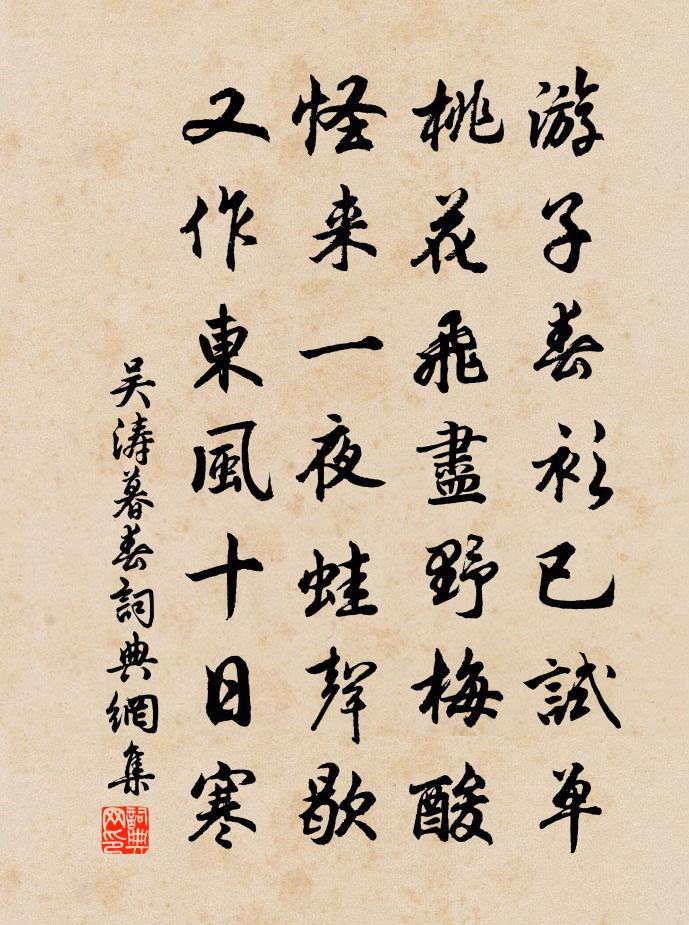 游子春衫已試单
桃花飛盡野梅酸
怪来一夜蛙聲歇
又作東風十日寒
吴濤暮春詞典網集
詞典网印